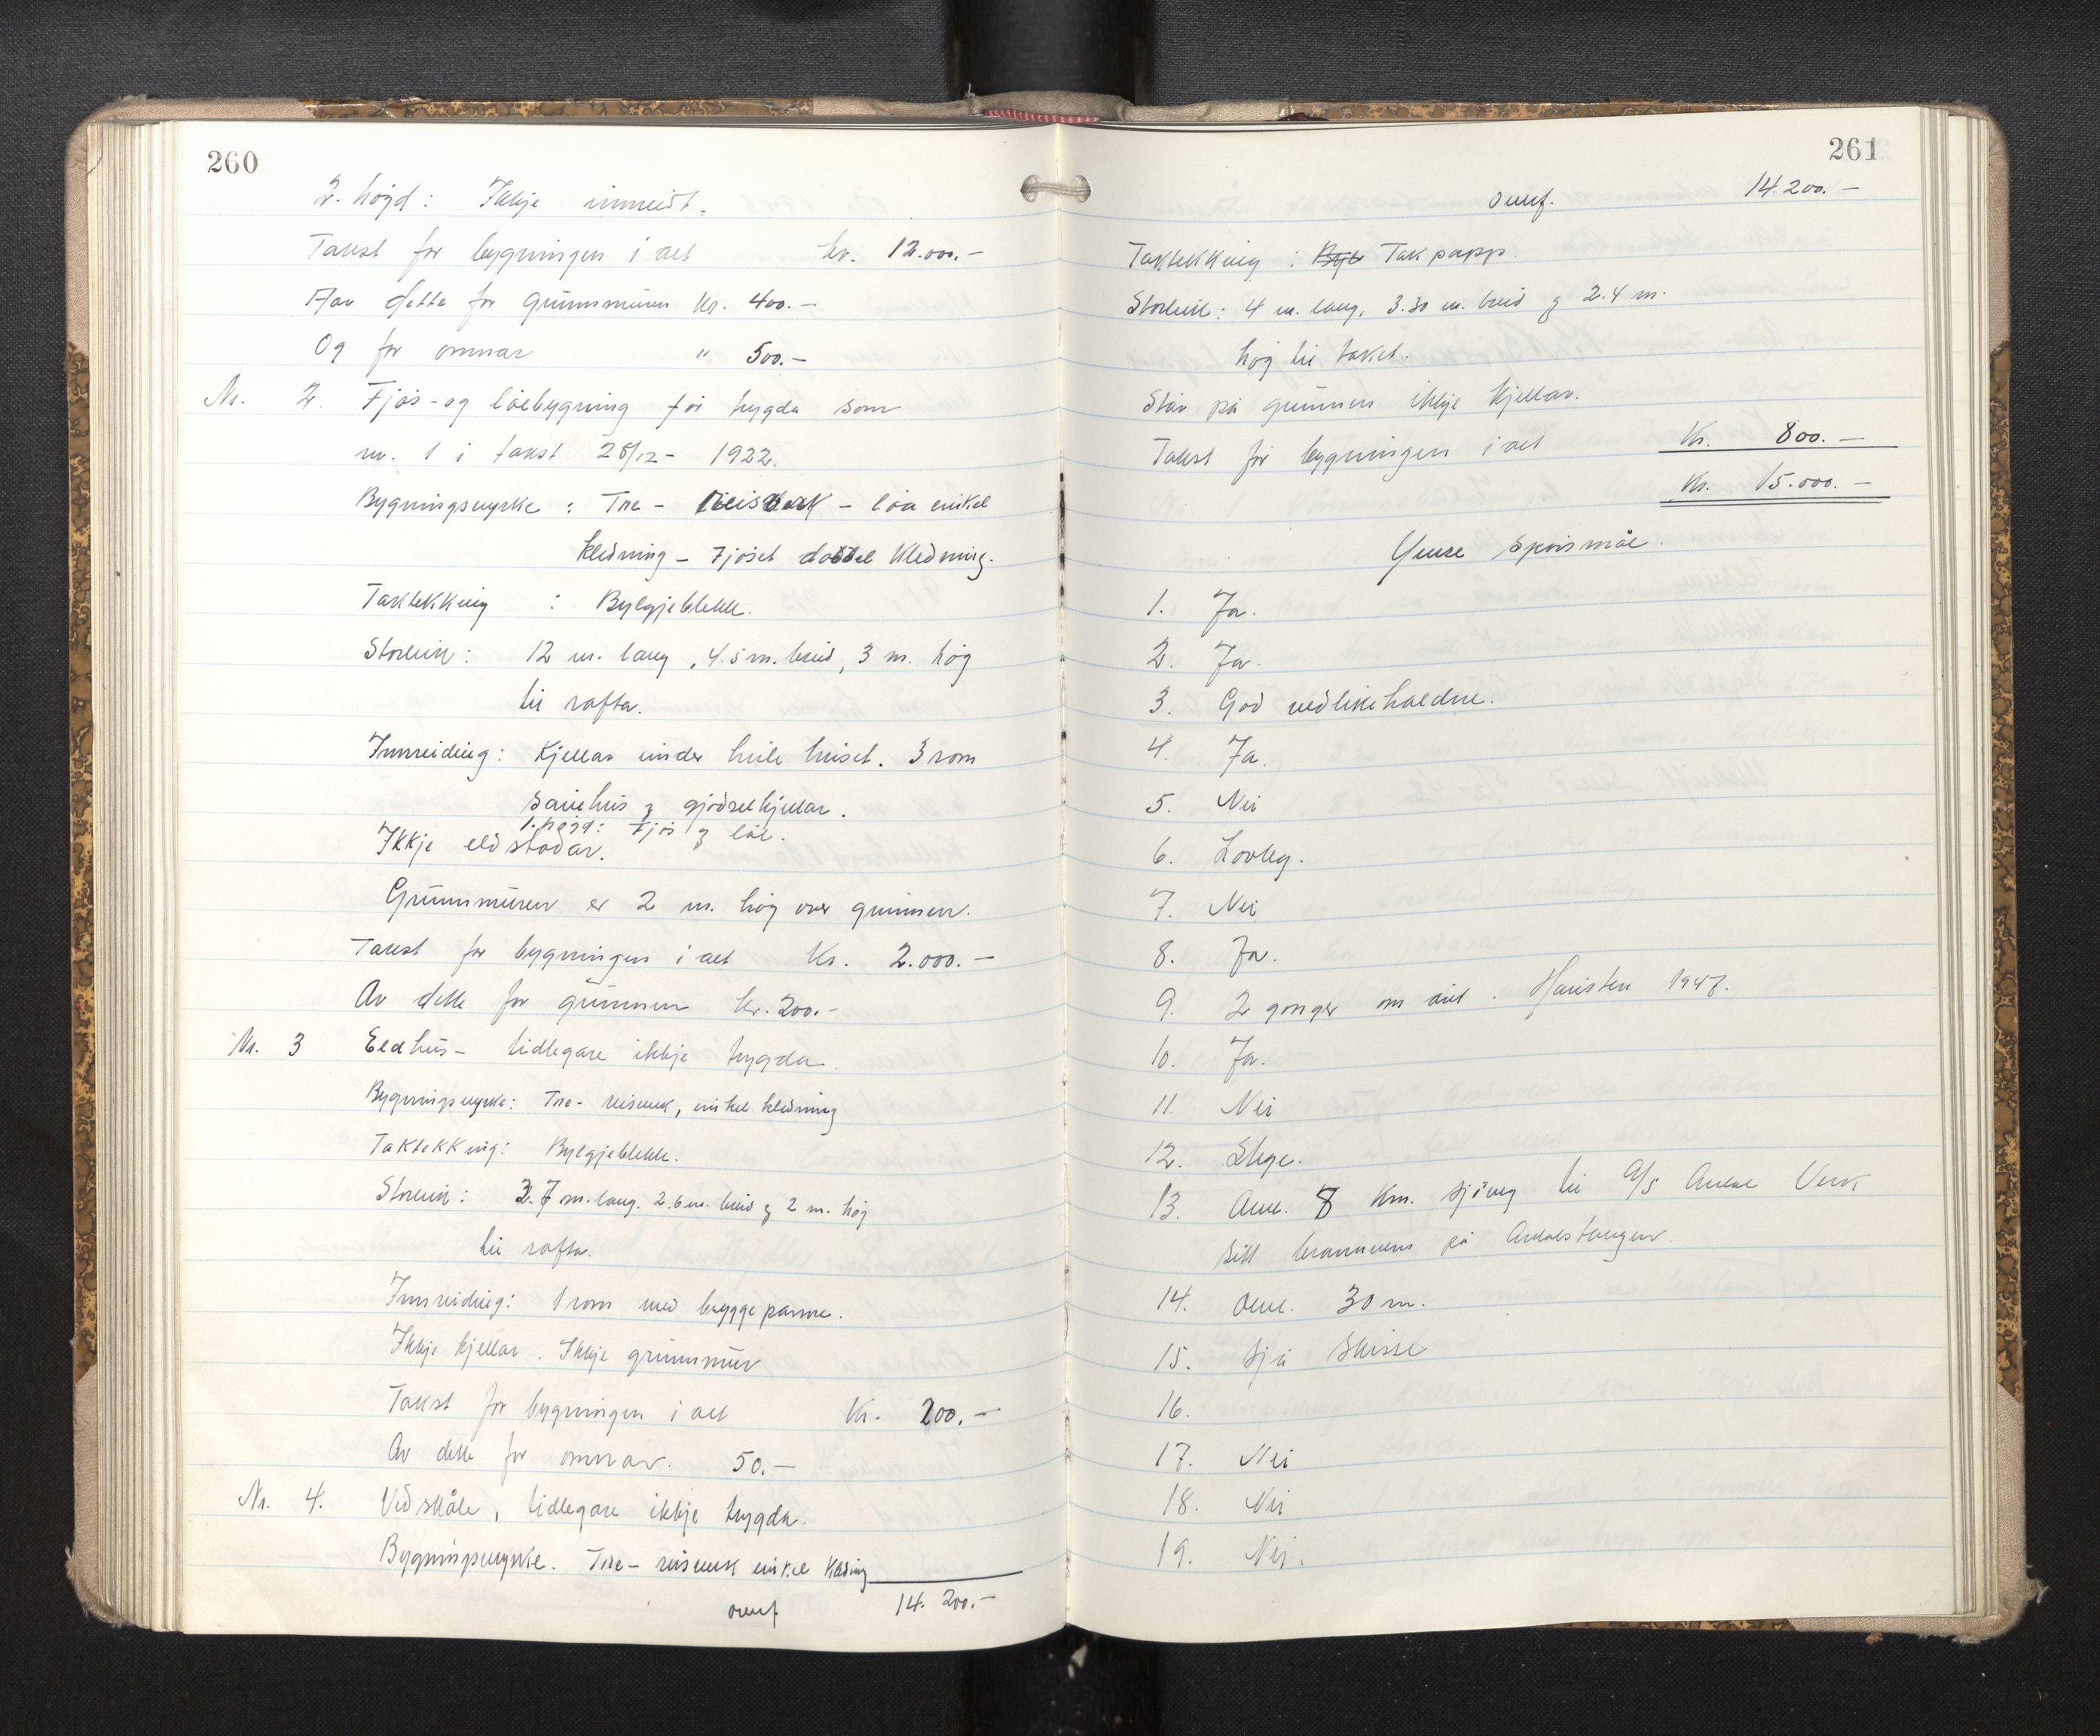 260
2. högd: Ikkje innreidt.
Takst for bygningen i alt kr. 12.000.-
Av dette for grunnmuren kr. 400.-
Og for omnar " 500.-
Nr. 2. Fjös- og löebygning för trygda som
nr. 1 i takst 28/12- 1922.
Bygningsmyrke : Tre - reisverk - löa enkel
kledning - Fjöset dobbel kledning.
Taktekking : Bylgjeblekk.
Storleik: 12 m. lang, 4.5 m. breid, 3 m. hög
til rafta.
Innreiding: Kjellar under heile huset. 3 rom
sauehus og gjödselkjellar.
1. högd: Fjös og löe.
Ikkje eldstadar.
Grunnmuren er 2 m. hög over grunnen.
Takst for bygningen i alt Kr. 2.000.-
Av dette for grunnen kr. 200.-
Nr. 3 Eldhus - tidlegare ikkje trygda.
Bygningsmyrke: Tre- reisverk, enkel kledning
Taktekking: Bylgjeblekk.
Storleik: 3.7 m. lang. 2.6 m. breid og 2 m. hög
til rafta.
Innreiding: 1 rom med bryggepanne.
Ikkje kjellar. Ikkje grunnmur
Takst for bygningen i alt Kr. 200.-
Av dette for omnar. 50.-
Nr. 4. Vedskåle, tidlegare ikkje trygda.
Bygningsmyrke. Tre- reisverk enkel kledning
overf 14.200.-
261
overf. 14.200.-
Taktekking : Byl Takpapp.
Storleik: 4 m. lang, 3.30 m. breid og 2.4 m.
hög til taket.
Står på grunnen ikkje kjellar.
Takst for bygningen i alt Kr. 800.-
Kr. 15.000.-
Ymse spörsmål.
1. Ja.
2. Ja.
3. God vedlikehaldne.
4. Ja.
5. Nei
6. Lovleg.
7. Nei
8. Ja.
9. 2 gonger om året. Hausten 1947.
10. Ja.
11. Nei
12. Stige.
13. Oml. 8 km. sjöveg til A/S Årdal Verk
sitt brannvern på Årdalstangen.
14. Oml. 30 m.
15. Sjå skisse
16.
17. Nei
18. Nei
19. Nei.